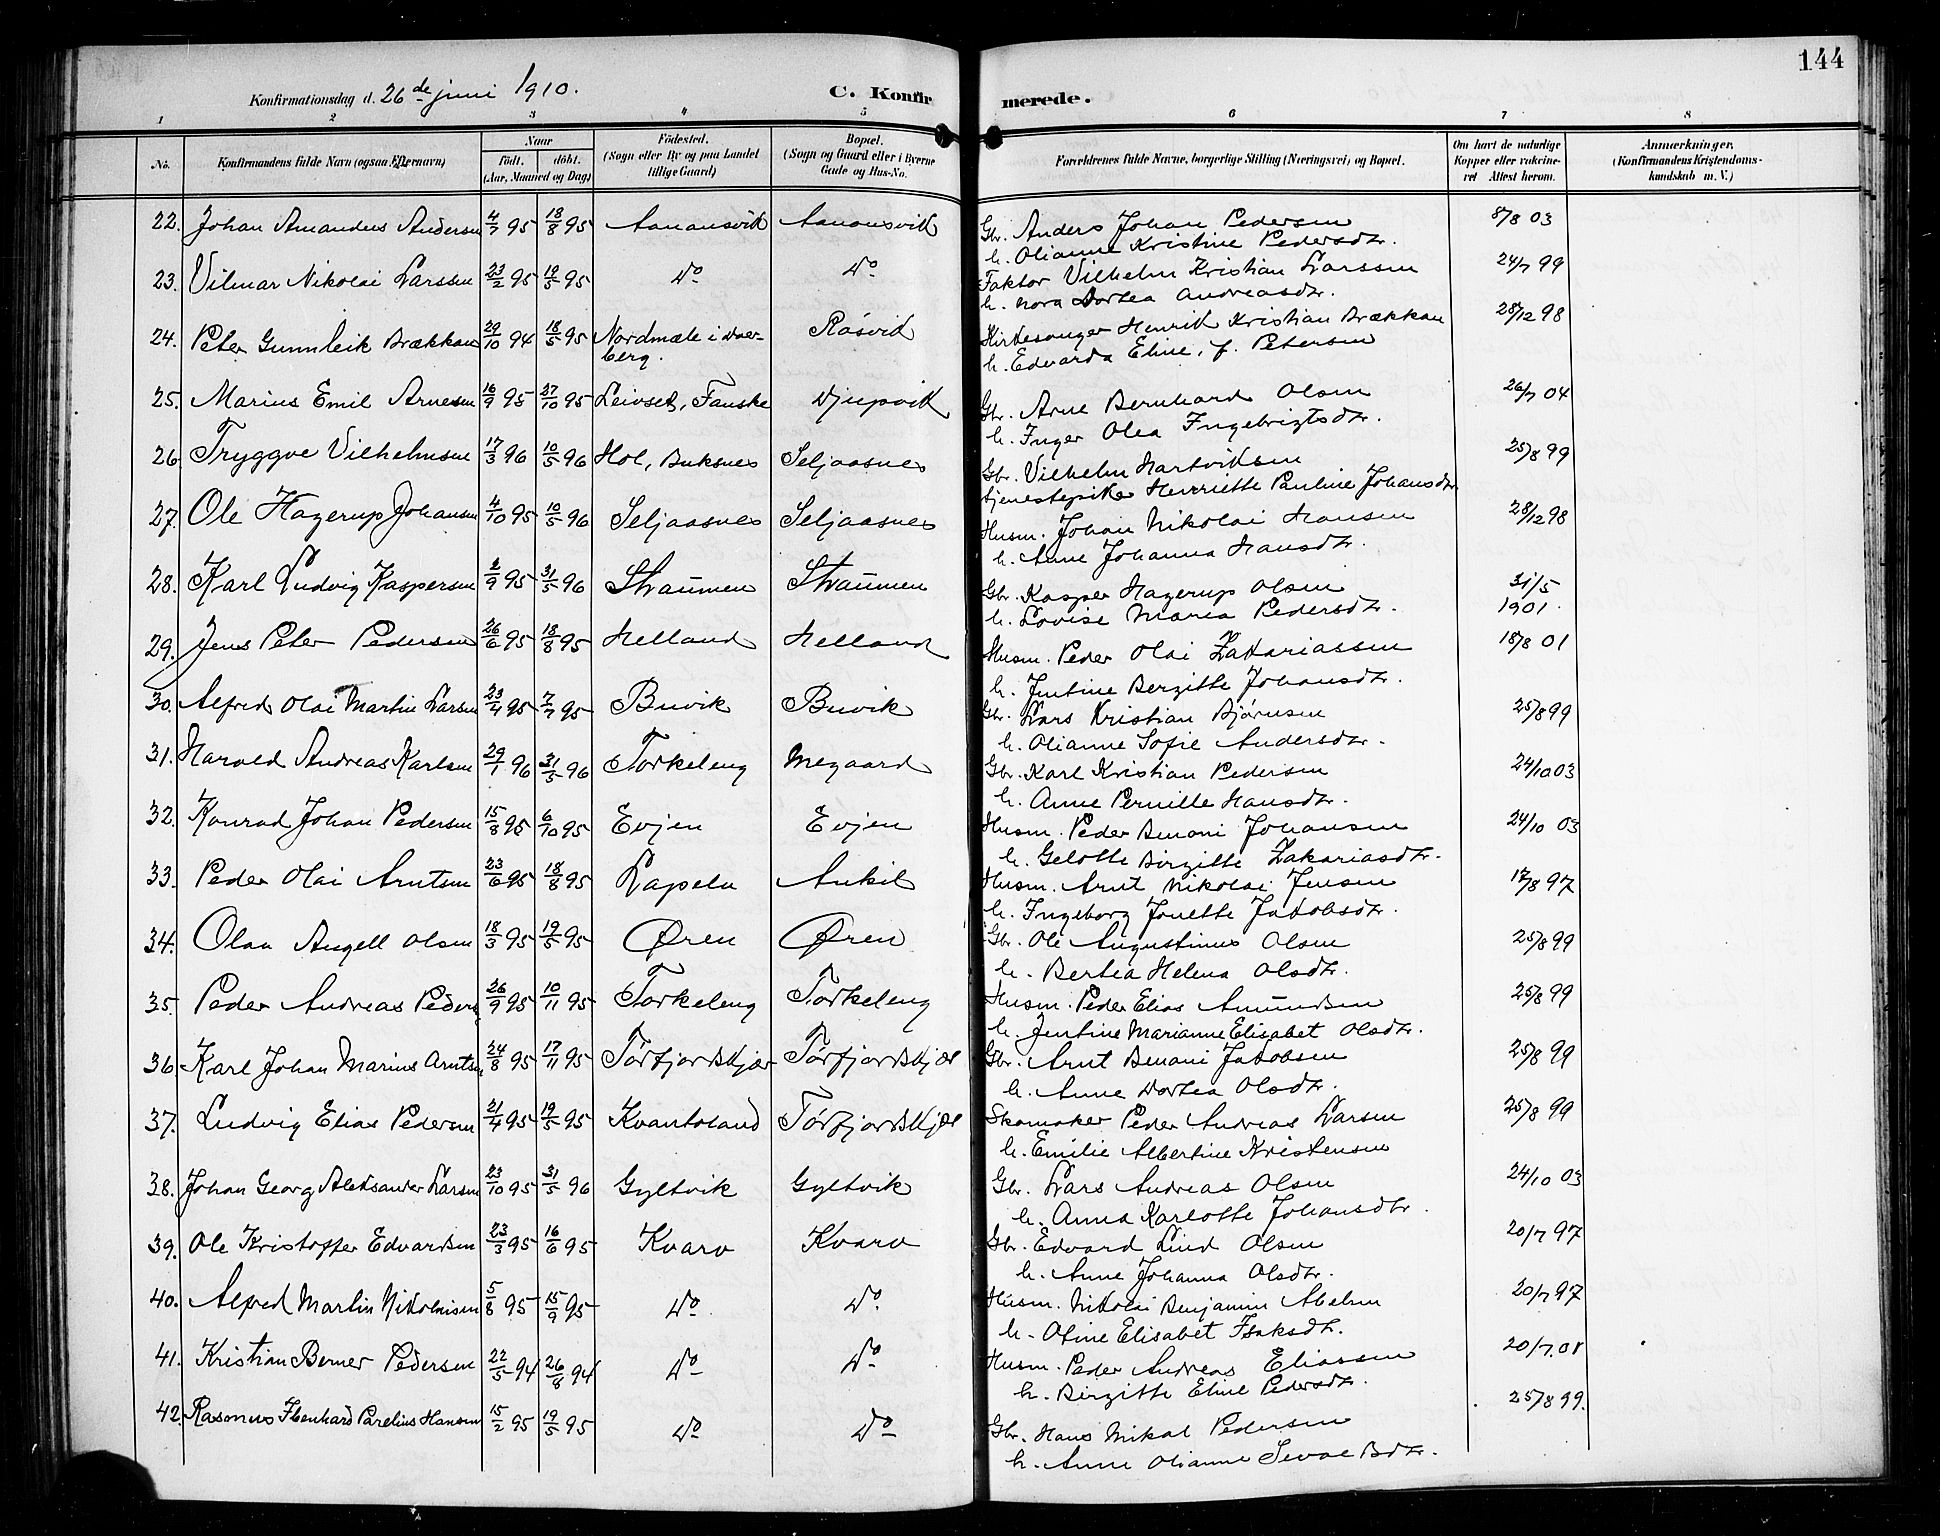 144
Konfirmationsdag d. 26de juni 1910. C. Konfirmerede.
1 2 3 4 5 6 7 8
No. Konfirmandens fulde Navn (ogsaa Efternavn) Naar født. døbt. (Aar, Maaned og Dag) Fødested. (Sogn eller By og paa Landet tillige Gaard) Bopæl. (Sogn og Gaard eller i Byerne Gade og Hus-No. Forældrenes fulde Navne, borgerlige Stilling (Næringsvei) og Bopæl. Om havt de naturlige Kopper eller vakcineret Attest herom. Anmærkninger. (Konfirmandens Kristendomskundskab m. V.)
22. Johan Amandus Andersen 4/7 95 18/8 95 Aanansvik Aanonsvik Gbr. Anders Johan Pedersen 8/8 03
h. Olianne Kristine Pedersdtr.
23. Vilmar Nikolai Larssen 23/2 95 19/5 95 Do Do Faktor Vilhelm Kristian Larssen 24/7 99
h. Nora Dortea Andreasdtr.
24. Peter Gunnleik Brækkan 29/10 94 18/5 95 Nordmæle i Røsvik Kirkesanger Henrik Kristian Brækkan 28/12 98
h. Edvarda Eline, f. Petersen
25. Marius Emil Arnesen 16/9 95 27/10 95 Leivset, Fauske Djupvik Gbr. Arne Bernhard Olsen 26/7 04
h. Inger Olea Ingebrigtsdtr.
26. Tryggve Vilhelmsen 17/3 96 10/5 96 Hol, Buksnes Seljaasnes Gbr. Vilhelm Hartviksen 25/8 99
tjenestepike Henriette Pauline Johansdtr
27. Ole Hagerup Johansen 4/10 95 10/5 96 Seljaasnes Seljaasnes Husm. Johan Nikolai Hansen 28/12 98
h. Anne Johanna Hansdtr.
28. Karl Ludvig Kaspersen 2/9 95 31/5 96 Straumen Straumen Gbr. Kasper Hagerup Olsen 31/5
h. Lovise Marea Pedersdtr. 1901.
29. Jens Peter Pedersen 26/6 95 18/8 95 Helland Helland Husm. Peder Olai Zakariassen 18/8 01
h. Jentine Bergitte Johansdtr.
30. Alfred Olai Martin Larsen 23/4 95 7/7 95 Buvik Buvik Gbr. Lars Kristian Bjørnsen 25/8 99
h. Olianne Sofie Andersdtr.
31. Harald Andreas Karlsen 29/1 96 31/5 96 Torkeleng Megaard Gbr. Karl Kristian Pedersen 24/10 03
h. Anne Pernille Hansdtr.
32. Konrad Johan Pedersen 15/8 95 6/10 95 Evjen Evjen Husm. Peder Benoni Johansen 24/10 03
h. Gelotte Birgitte Zakariasdtr.
33. Peder Olai Arntsen 23/6 95 18/8 95 Lapelv Ankil Husm. Arnt Nikolai Jensen 17/8 97
h. Ingeborg Jonette Jakobsdtr.
34. Olav Angell Olsen 18/3 95 19/5 95 Øren Øren Gbr. Ole Augustinus Olsen 25/8 99
h. Bertea Helena Olsdtr.
35. Peder Andreas Peders 26/9 95 10/11 95 Torkeleng Torkeleng Husm. Peder Elias Amundsen 25/8 99
h. Jentine Marianne Elisabet Olsdtr.
36. Karl Johan Marius Arntsen 24/8 95 17/11 95 Tørfjordskjær Tørfjordskjær Gbr. Arnt Benoni Jakobsen 25/8 99
h. Anne Dortea Olsdtr.
37. Ludvig Elias Pedersen 21/4 95 19/5 95 Kvantoland Tørfjordskjær Skomaker Peder Andreas Larsen 25/8 99
h. Emilie Albertine Kristensen
38. Johan Georg Aleksander Larsen 23/10 95 31/5 96 Gyltvik Gyltvik Gbr. Lars Andreas Olsen 24/10 03
h. Anna Karlotte Johansdtr.
39. Ole Kristoffer Edvardsen 23/3 95 16/6 95 Kvarv Kvarv Gbr. Edvard Lind Olsen 20/7 97
h. Anne Johanna Olsdtr.
40. Alfred Martin Nikolaisen 5/8 95 15/9 95 Do Do Husm. Nikolai Benjamin Abelsen 20/7 97
h. Ofine Elisabet Isaksdtr.
41. Kristian Berner Pedersen 22/5 94 26/8 94 Do Do Husm. Peder Andreas Eliassen 20/7.01
h. Birgitte Eline Pedersdtr.
42. Rasmus Ibenhard Parelius Hansen 15/2 95 19/5 95 Do Do Gbr. Hans Mikal Pedersen 25/8 99.
h. Anne Olianne